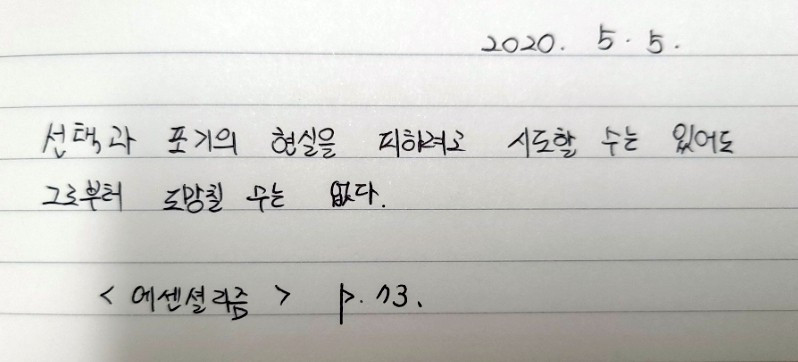 2020. 5. 5.
선택과 포기의 현실을 피하려고 시도할 수는 있어도
그로부터 도망칠 수는 없다.
<에센셜리즘> p. 73.